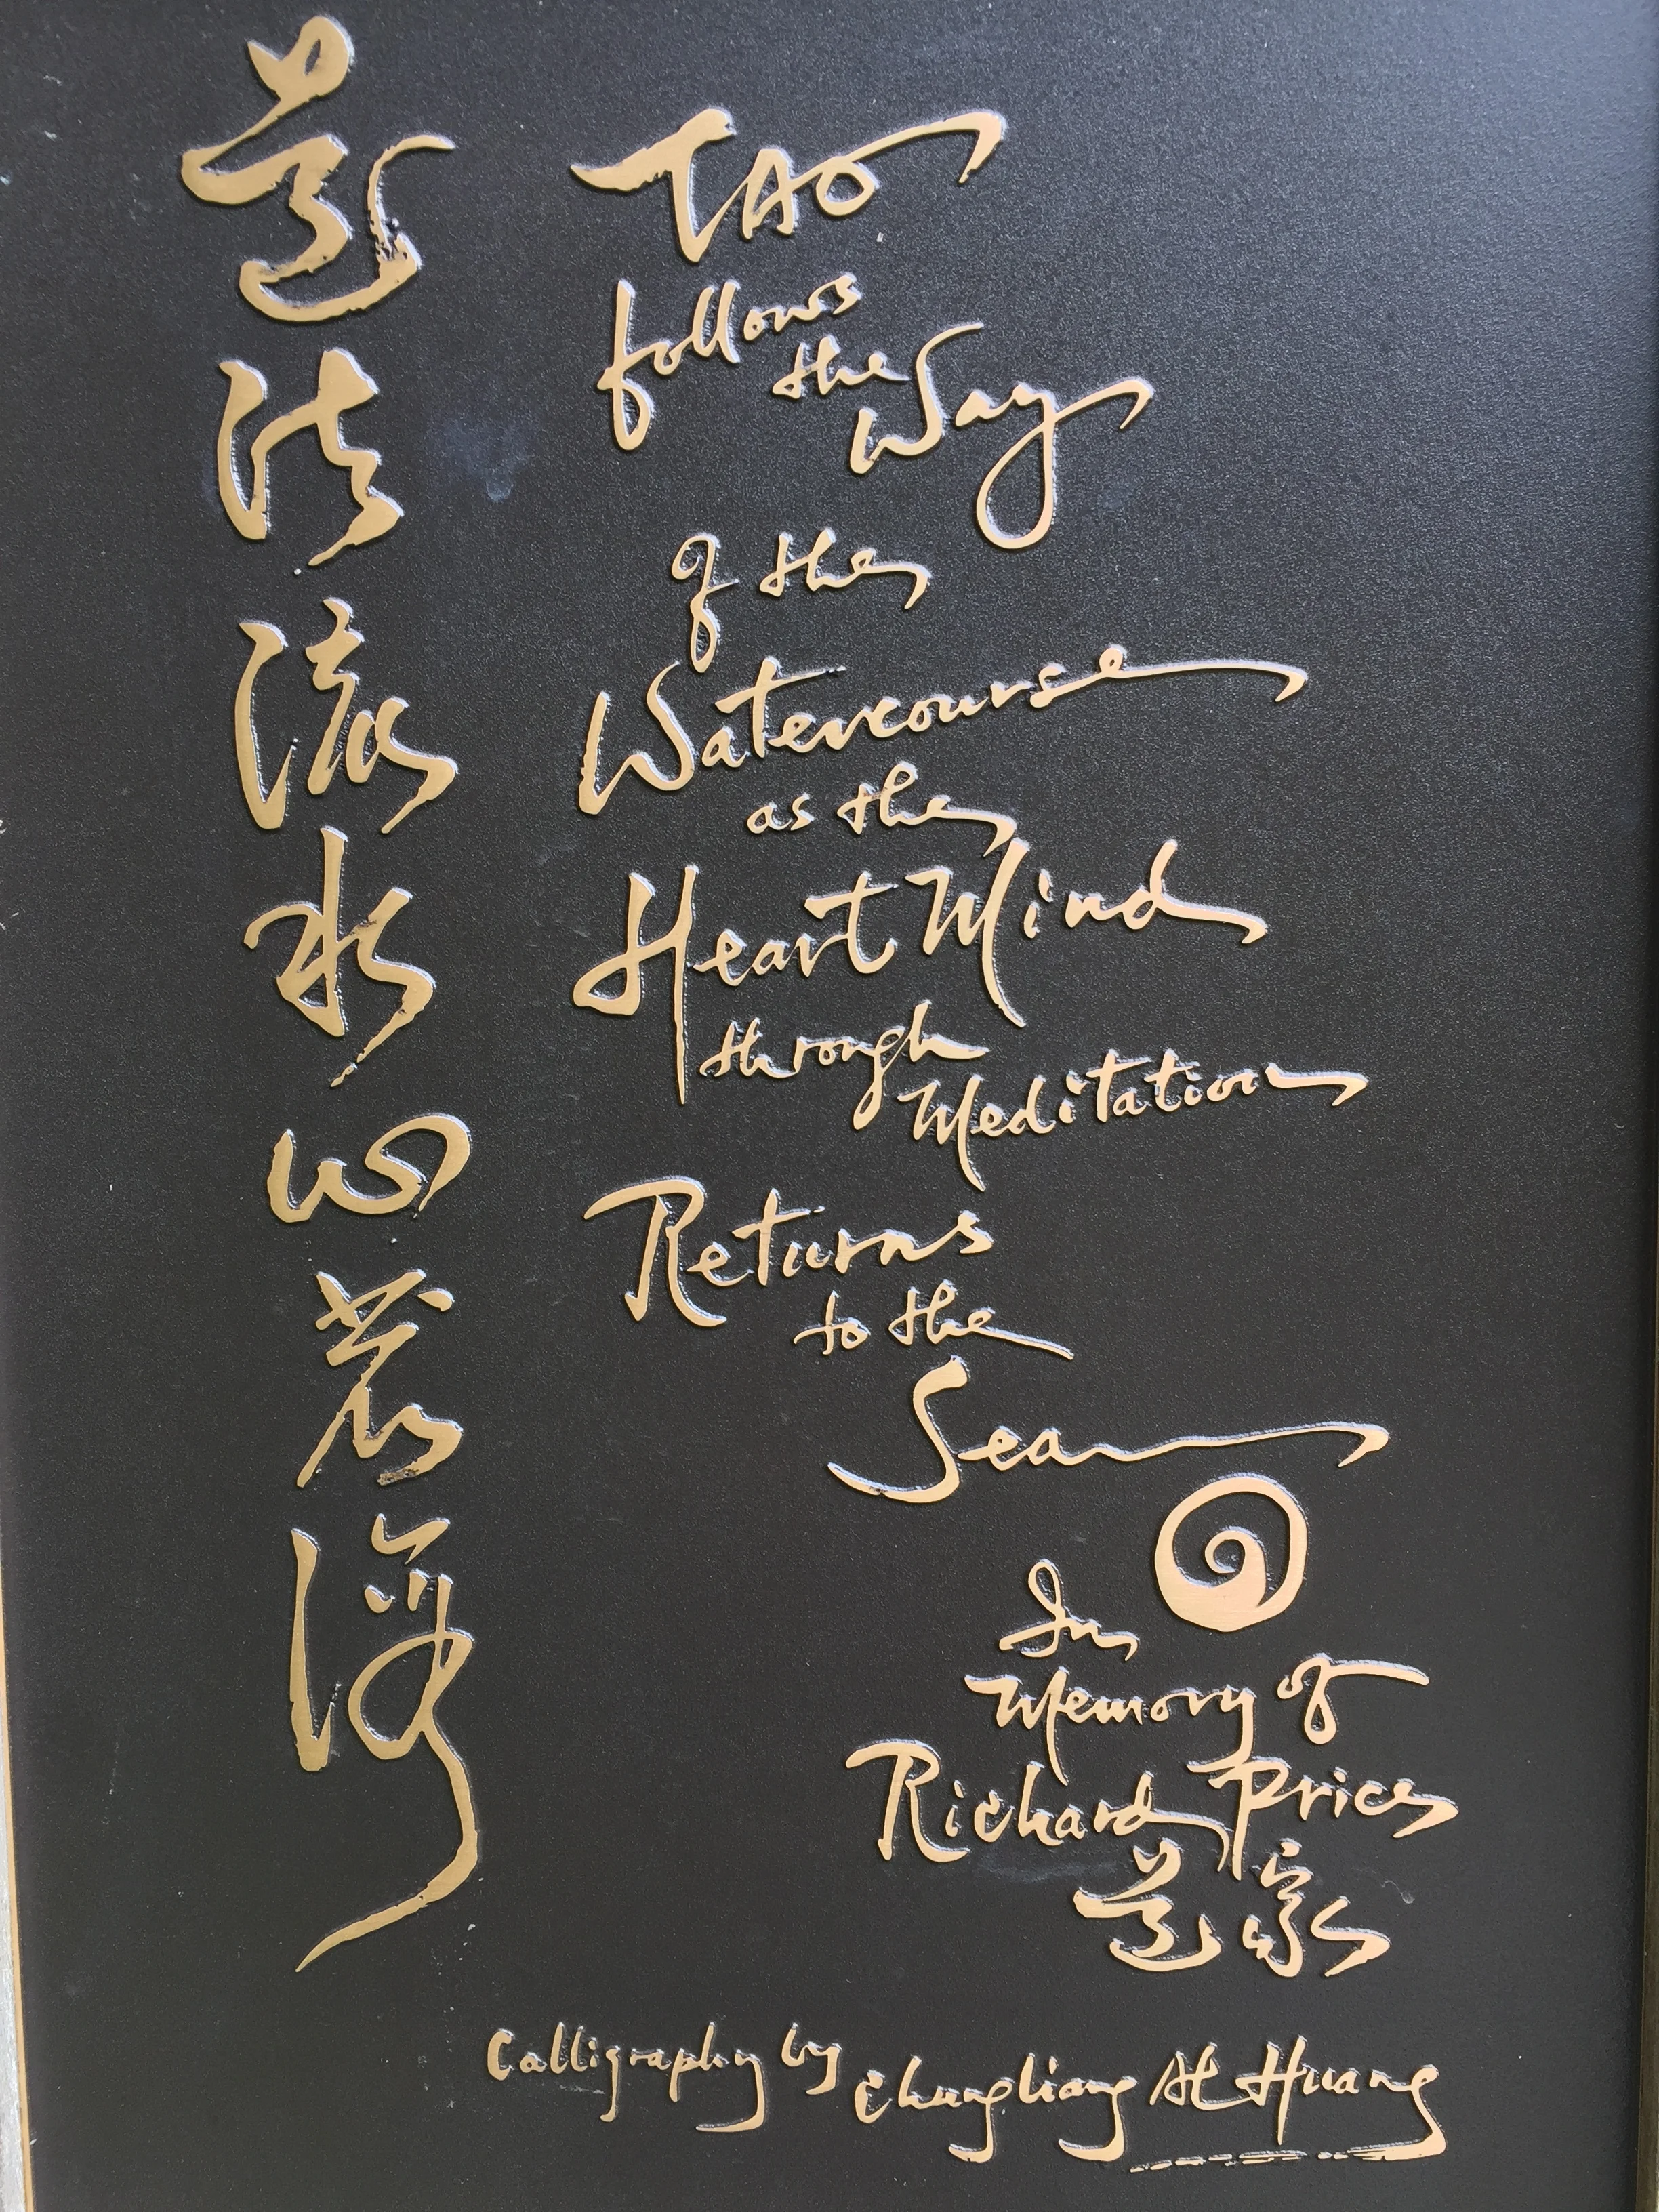 道法流水心若海
TAO
follows
the
Way
of the
Watercourse
as the
Heart Mind
through
Meditation
Returns
to the
Sea
In
Memory of
Richard Price
Calligraphy by Chungliang Al Huang